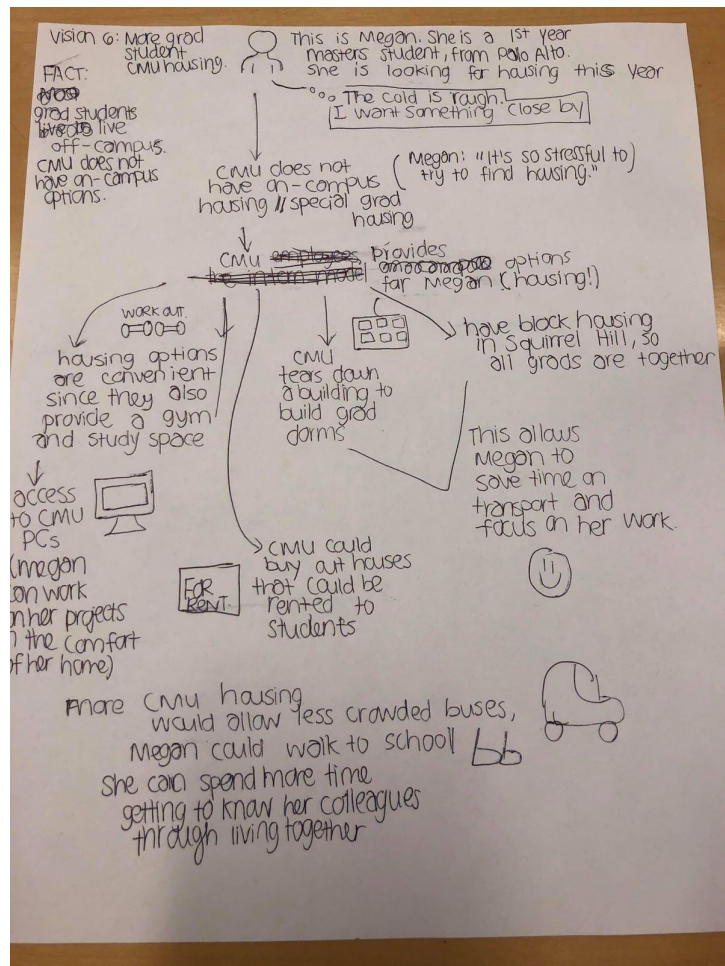 Vision 6: More grad
student
CMU housing.
FACT:
grad students
live
off-campus.
CMU does not
have on-campus
options.
This is Megan. She is a 1st year
masters student, from Palo Alto.
She is looking for housing this year
The cold is rough.
I want something close by
CMU does not
have on-campus
housing // special grad
housing
Megan: "It's so stressful to
try to find housing."
CMU employees provides
the intern model options
for Megan (housing!)
WORK OUT.
housing options
are convenient
since they also
provide a gym
and study space
access
to CMU
PCs
(megan
on work
n her projects
n the comfort
f her home)
CMU
tears down
a building to
build grad
dorms
have block housing
in Squirrel Hill, so
all grads are together
This allows
Megan to
save time on
transport and
focus on her work.
FOR
RENT.
CMU could
buy out houses
that could be
rented to
students
more CMU housing
would allow less crowded buses,
Megan could walk to school
She can spend more time
getting to know her colleagues
through living together